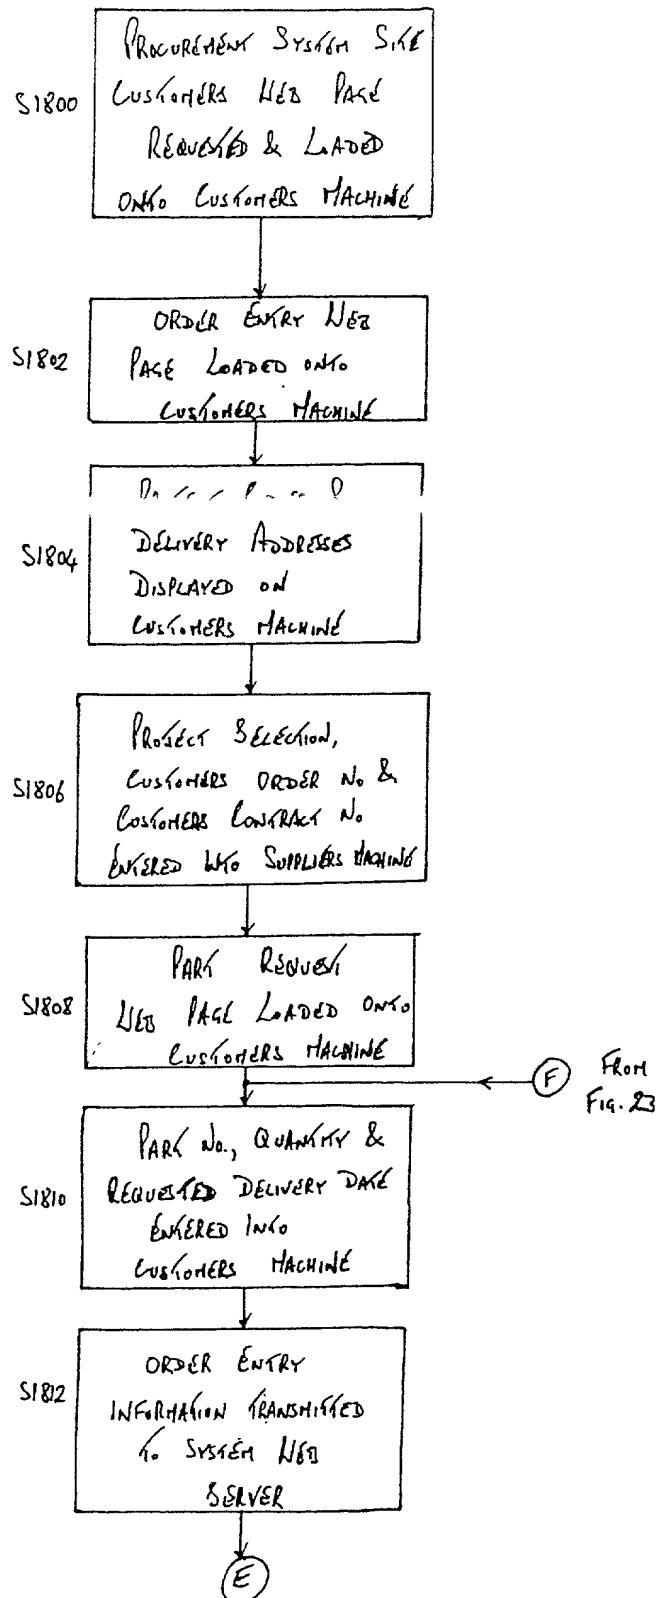 PROCUREMENT SYSTEM SITE
S1800
CUSTOMERS WEB PAGE
REQUESTED & LOADED
ONTO CUSTOMERS MACHINE
ORDER ENTRY WEB
S1802
PAGE LOADED ONTO
CUSTOMERS MACHINE
S1804
DELIVERY ADDRESSES
DISPLAYED ON
CUSTOMERS MACHINE
PROJECT SELECTION,
S1806
CUSTOMERS ORDER NO &
CUSTOMERS CONTRACT NO
ENTERED INTO SUPPLIERS MACHINE
PART REQUEST
S1808
WEB PAGE LOADED ONTO
CUSTOMERS MACHINE
F
FROM
FIG. 23
PART NO., QUANTITY &
S1810
REQUESTED DELIVERY DATE
ENTERED INTO
CUSTOMERS MACHINE
ORDER ENTRY
S1812
INFORMATION TRANSMITTED
TO SYSTEM WEB
SERVER
E